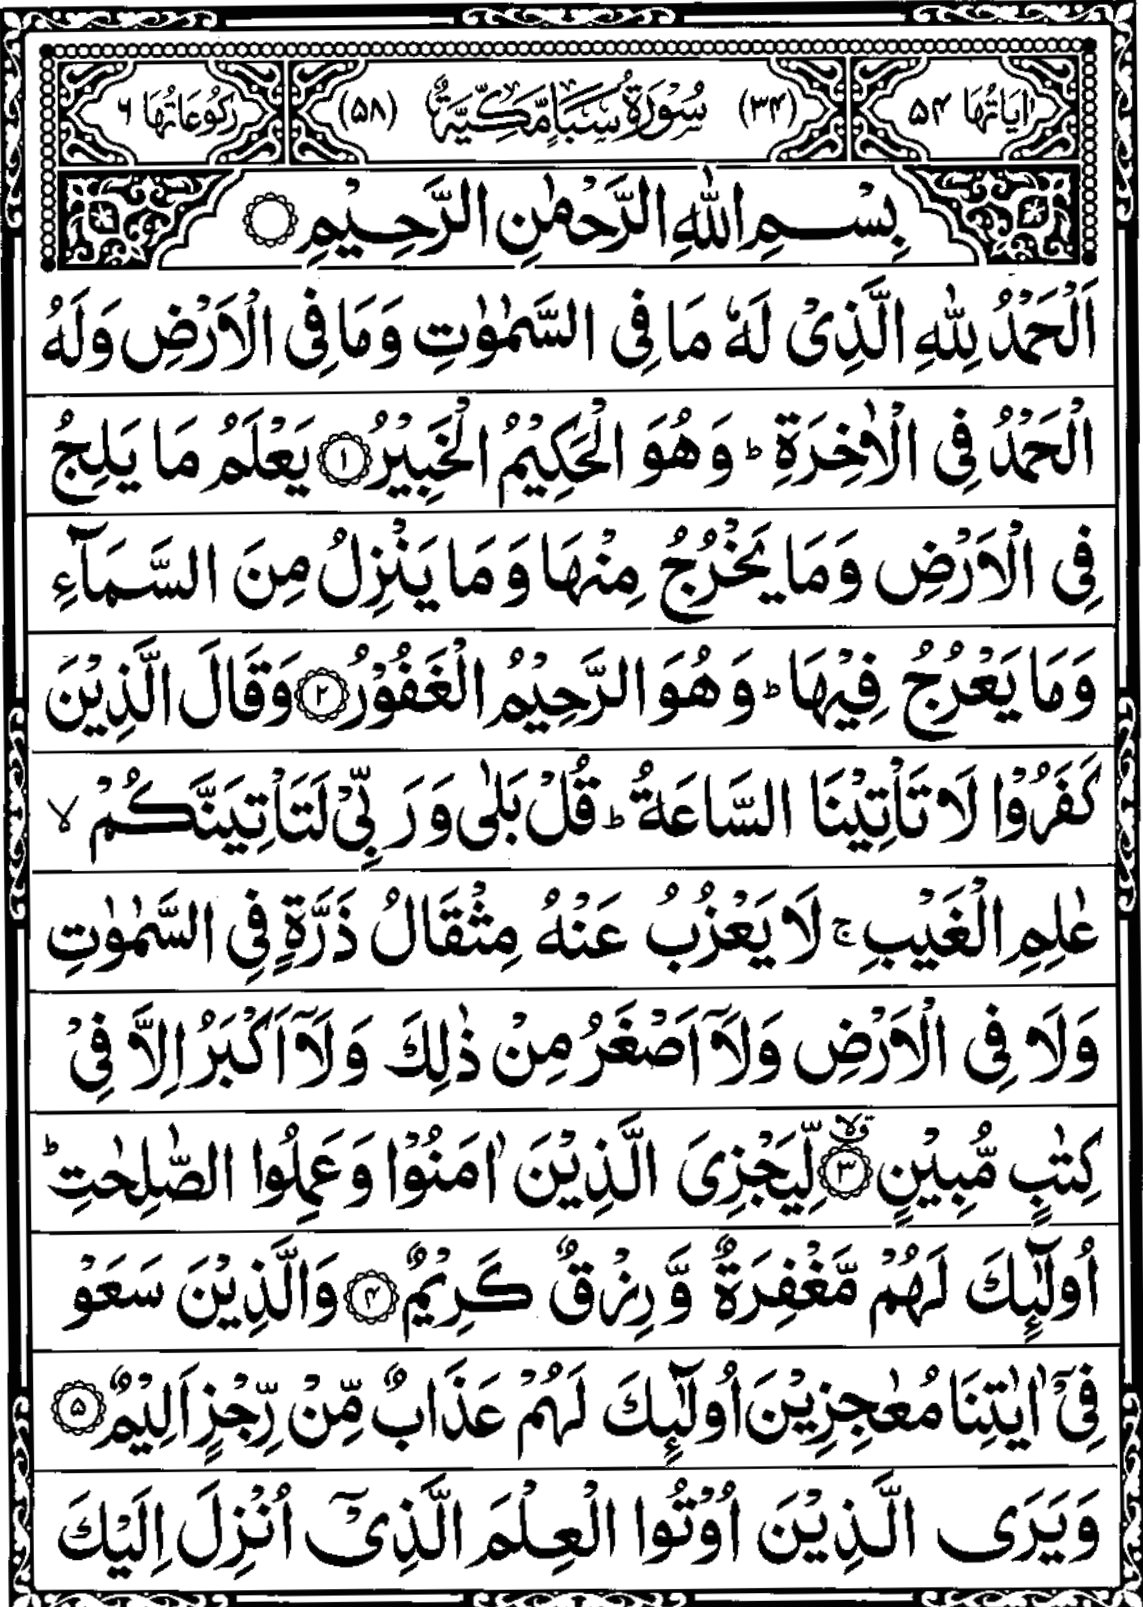 اٰيَاتُهَا ۵۴
(۳۴) سُوْرَةُ سَبَاٍ مَّكِّيَّةٌ (۵۸)
رُكُوْعَاتُهَا ۶
بِسْمِ اللّٰهِ الرَّحْمٰنِ الرَّحِيْمِ
اَلْحَمْدُ لِلّٰهِ الَّذِىْ لَهٗ مَا فِى السَّمٰوٰتِ وَمَا فِى الْاَرْضِ وَلَهُ
الْحَمْدُ فِى الْاٰخِرَةِ ؕ وَهُوَ الْحَكِيْمُ الْخَبِيْرُ ﴿۱﴾ يَعْلَمُ مَا يَلِجُ
فِى الْاَرْضِ وَمَا يَخْرُجُ مِنْهَا وَمَا يَنْزِلُ مِنَ السَّمَآءِ
وَمَا يَعْرُجُ فِيْهَا ؕ وَهُوَ الرَّحِيْمُ الْغَفُوْرُ ﴿۲﴾ وَقَالَ الَّذِيْنَ
كَفَرُوْا لَا تَاْتِيْنَا السَّاعَةُ ؕ قُلْ بَلٰى وَرَبِّىْ لَتَاْتِيَنَّكُمْ ۙ
عٰلِمِ الْغَيْبِ ۚ لَا يَعْزُبُ عَنْهُ مِثْقَالُ ذَرَّةٍ فِى السَّمٰوٰتِ
وَلَا فِى الْاَرْضِ وَلَاۤ اَصْغَرُ مِنْ ذٰلِكَ وَلَاۤ اَكْبَرُ اِلَّا فِىْ
كِتٰبٍ مُّبِيْنٍ ﴿۳﴾ ۙق لِّيَجْزِىَ الَّذِيْنَ اٰمَنُوْا وَعَمِلُوا الصّٰلِحٰتِ ؕ
اُولٰٓئِكَ لَهُمْ مَّغْفِرَةٌ وَّرِزْقٌ كَرِيْمٌ ﴿۴﴾ وَالَّذِيْنَ سَعَوْ
فِىْۤ اٰيٰتِنَا مُعٰجِزِيْنَ اُولٰٓئِكَ لَهُمْ عَذَابٌ مِّنْ رِّجْزٍ اَلِيْمٌ ﴿۵﴾
وَيَرَى الَّذِيْنَ اُوْتُوا الْعِلْمَ الَّذِىْۤ اُنْزِلَ اِلَيْكَ